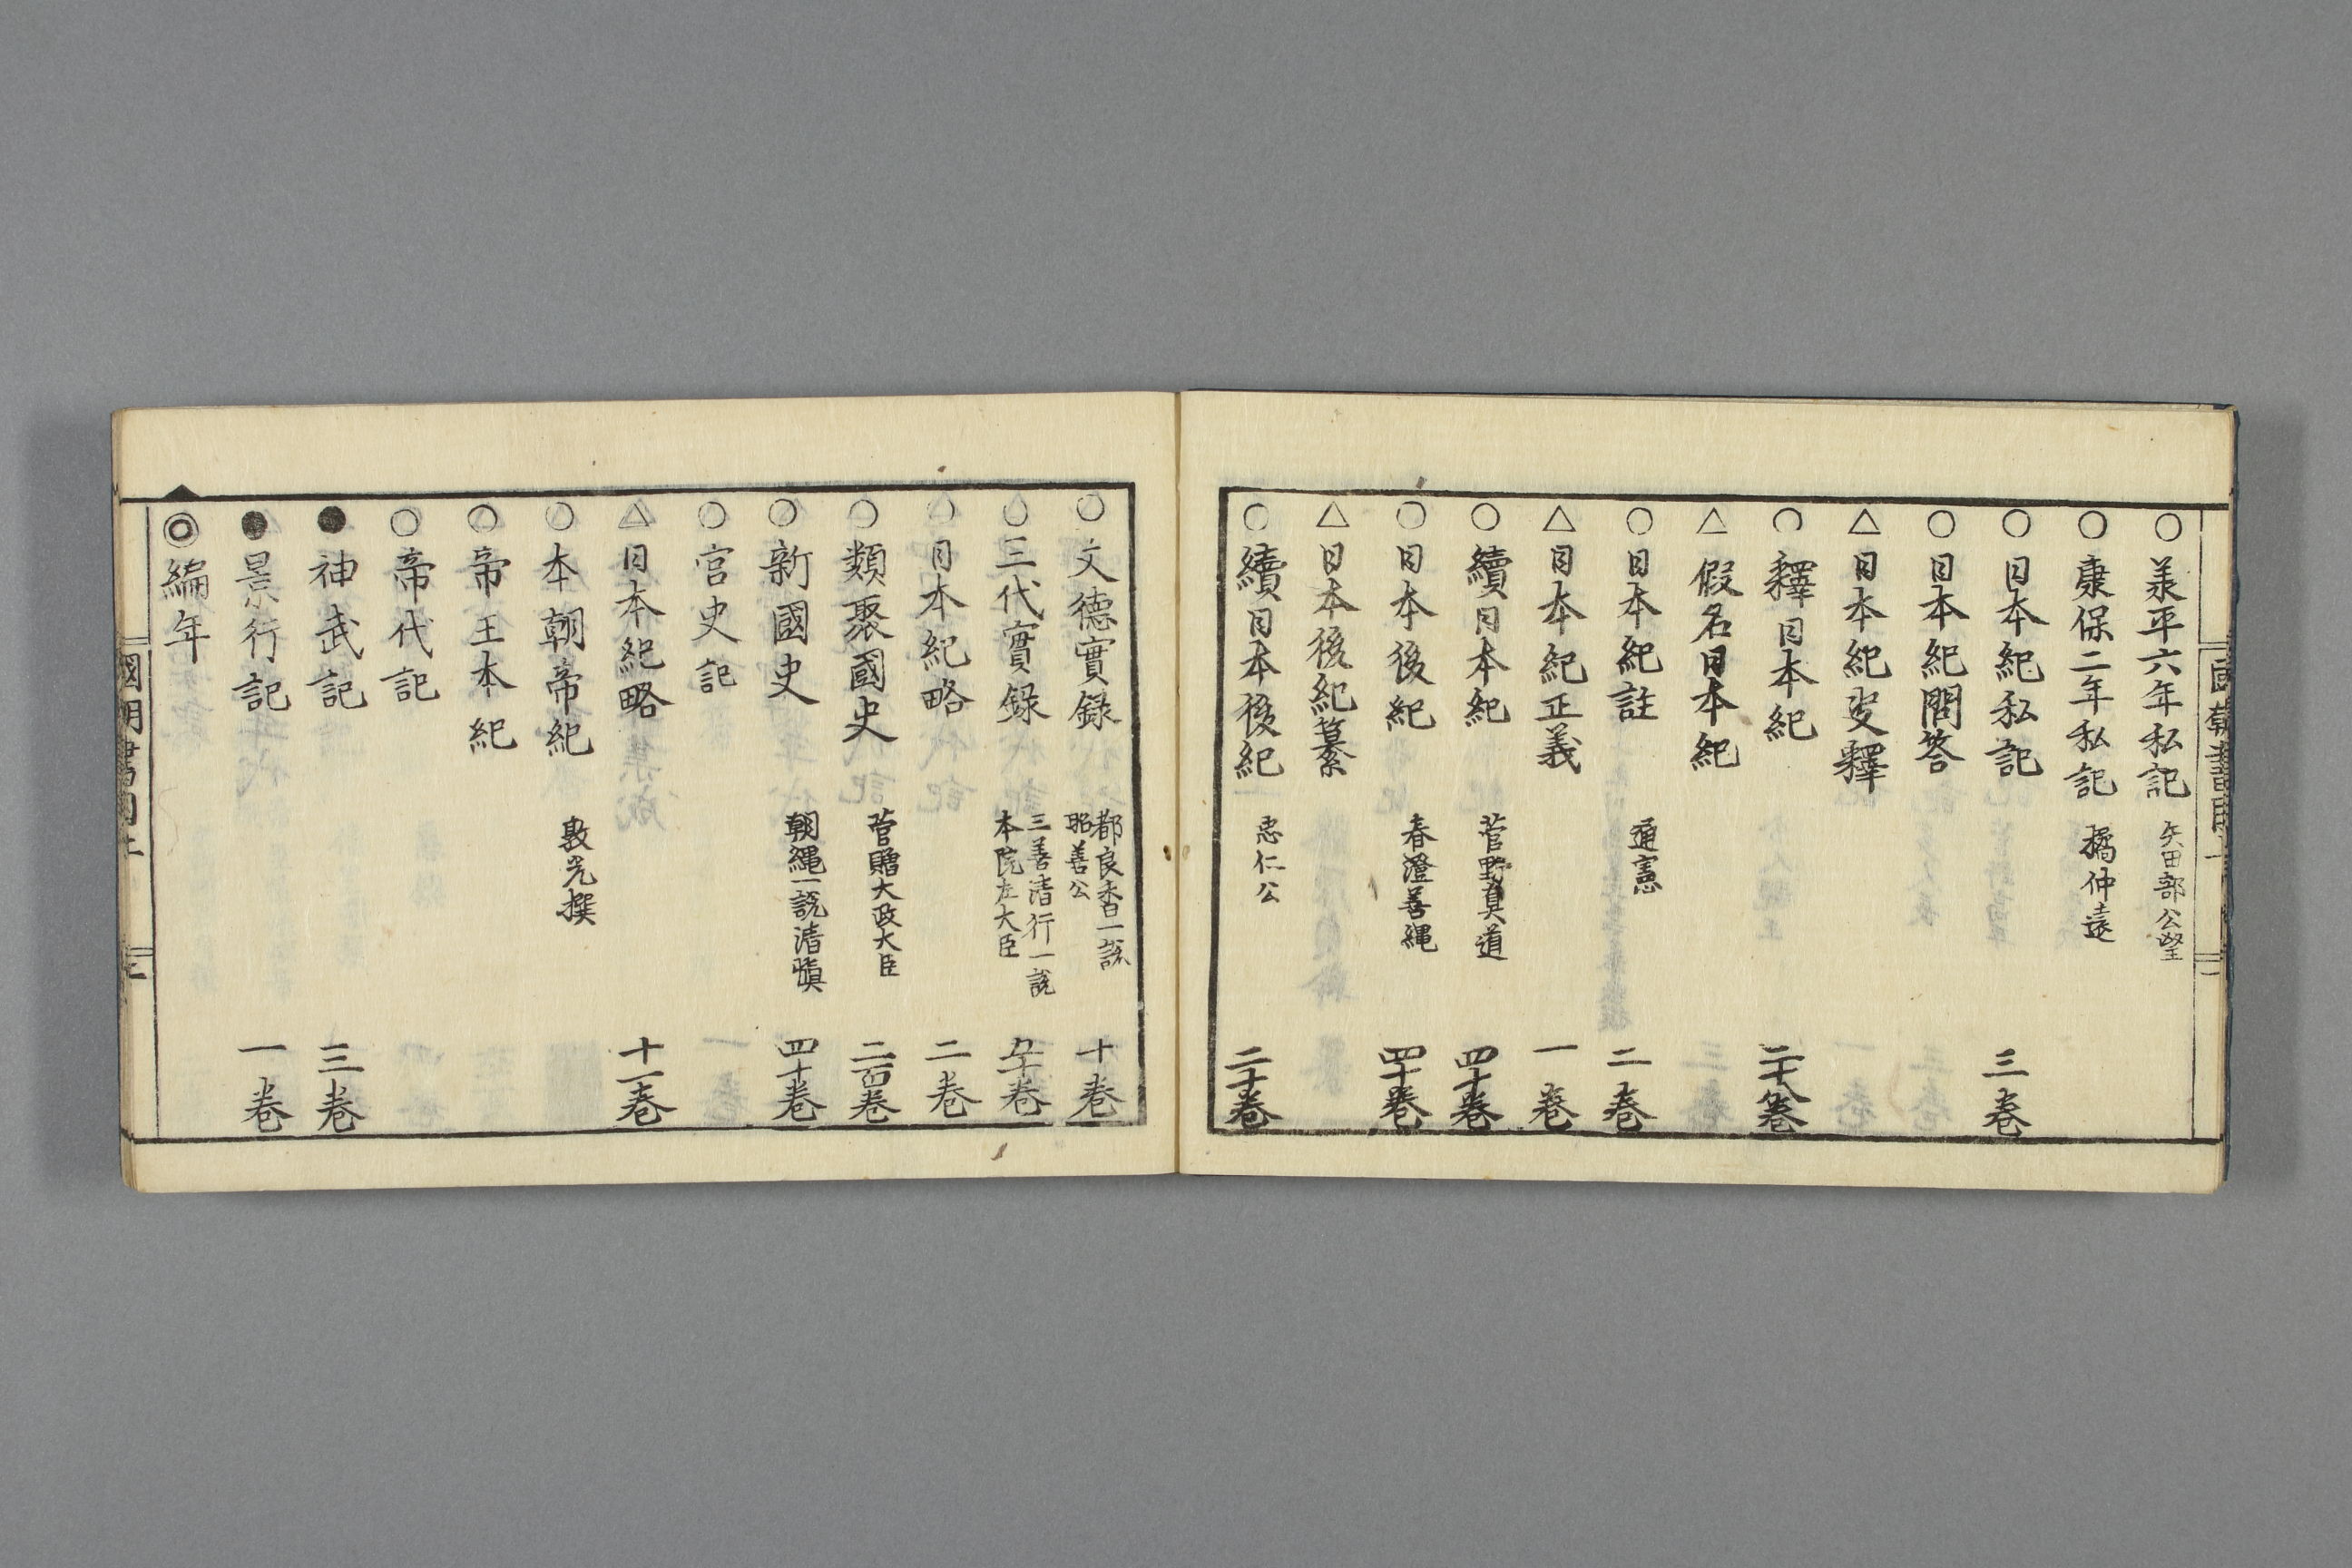 ○承平六年私記 矢田部公望
○康保二年私記 橘仲遠
○日本紀私記 三卷
○日本紀問答
△日本紀叓釋
○釋日本紀 二十八卷
△假名日本紀
○日本紀註 通憲 二卷
△日本紀正義 一卷
○續日本紀 菅野真道 四十卷
○日本後紀 春澄善縄 四十卷
△日本後紀纂
○續日本後紀 忠仁公 二十卷
○文德實録 都良香一説昭善公 十卷
○三代實録 三善清行一説本院左大臣 五十卷
○日本紀略 二卷
○類聚國史 菅贈大政大臣 二百卷
○新國史 朝縄一説清慎 四十卷
○官史記
△日本紀略 十一卷
○本朝帝紀 敦光撰
○帝王本紀
○帝代記
●神武記 三卷
●景行記 一卷
◎編年
國朝書目上 三